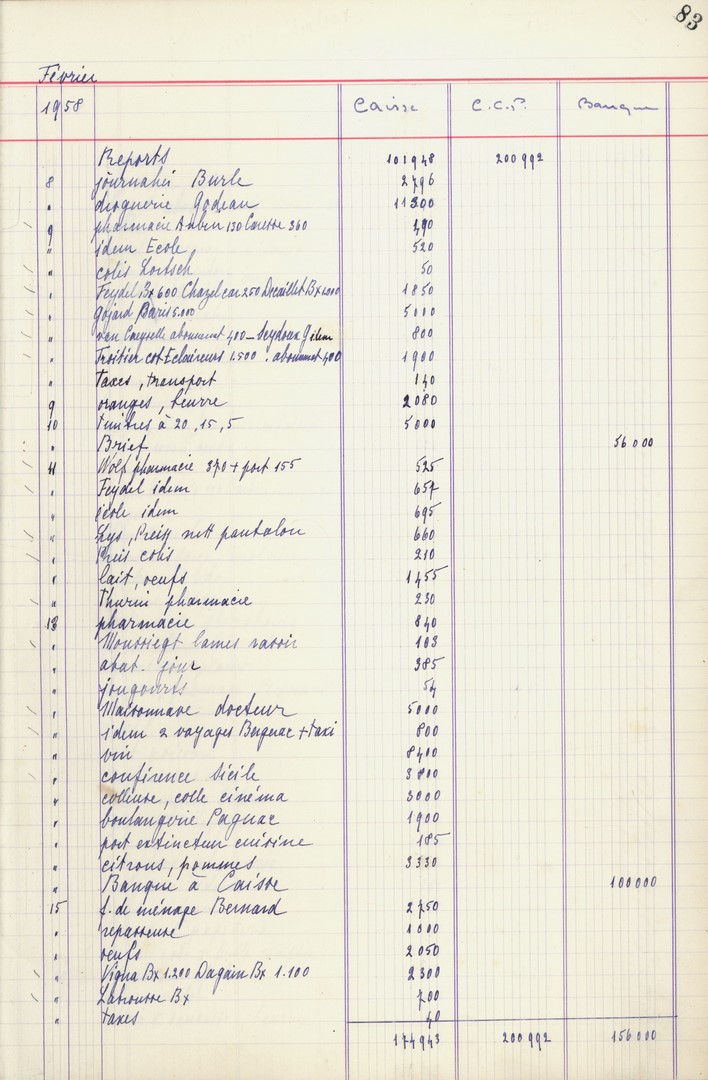 83
Février
1958 Caisse C.C.P. Banque
Reports 101948 200992
8 journalier Burle 2796
" droguerie Godeau 11300
9 pharmacie Aubin 130 Caresse 360 490
" idem Ecole 520
" colis Loitsch 50
" Feydel Bx 600 Chazel car 250 Bx 1000 1850
" Gojard Paris 5.000 5000
" van abonnement 400 _ Seydoux G idem 800
" Troitier cot Eclaireurs 1.500 . abonnemt 400 1900
" Taxes, transport 140
9 oranges, beurre 2080
10 timbres à 20, 15, 5 5000
" Brief 56000
11 Wolf pharmacie 370 + port 155 525
" Feydel idem 657
" école idem 695
" Lys, Preiss nett pantalon 660
" Preis colis 210
" lait, oeufs 1455
" Thurin pharmacie 230
13 pharmacie 840
" Moussiegt lames rasoir 103
" abat-jour 385
" yougourts 54
" Maisonnave docteur 5000
" idem 2 voyages Bergerac + taxi 800
" vin 8400
" conférence Sicile 3800
" colleuse, colle cinéma 3000
" boulangerie Pagnac 1900
" port extincteur cuisine 185
" citrons, pommes 3330
" Banque à Caisse 100000
15 f. de ménage Bernard 2750
" repasseuse 1000
" oeufs 2050
" Vigna Bx 1.200 Dagain Bx 1.100 2300
" Labrousse Bx 700
" taxes 40
174943 200992 156000